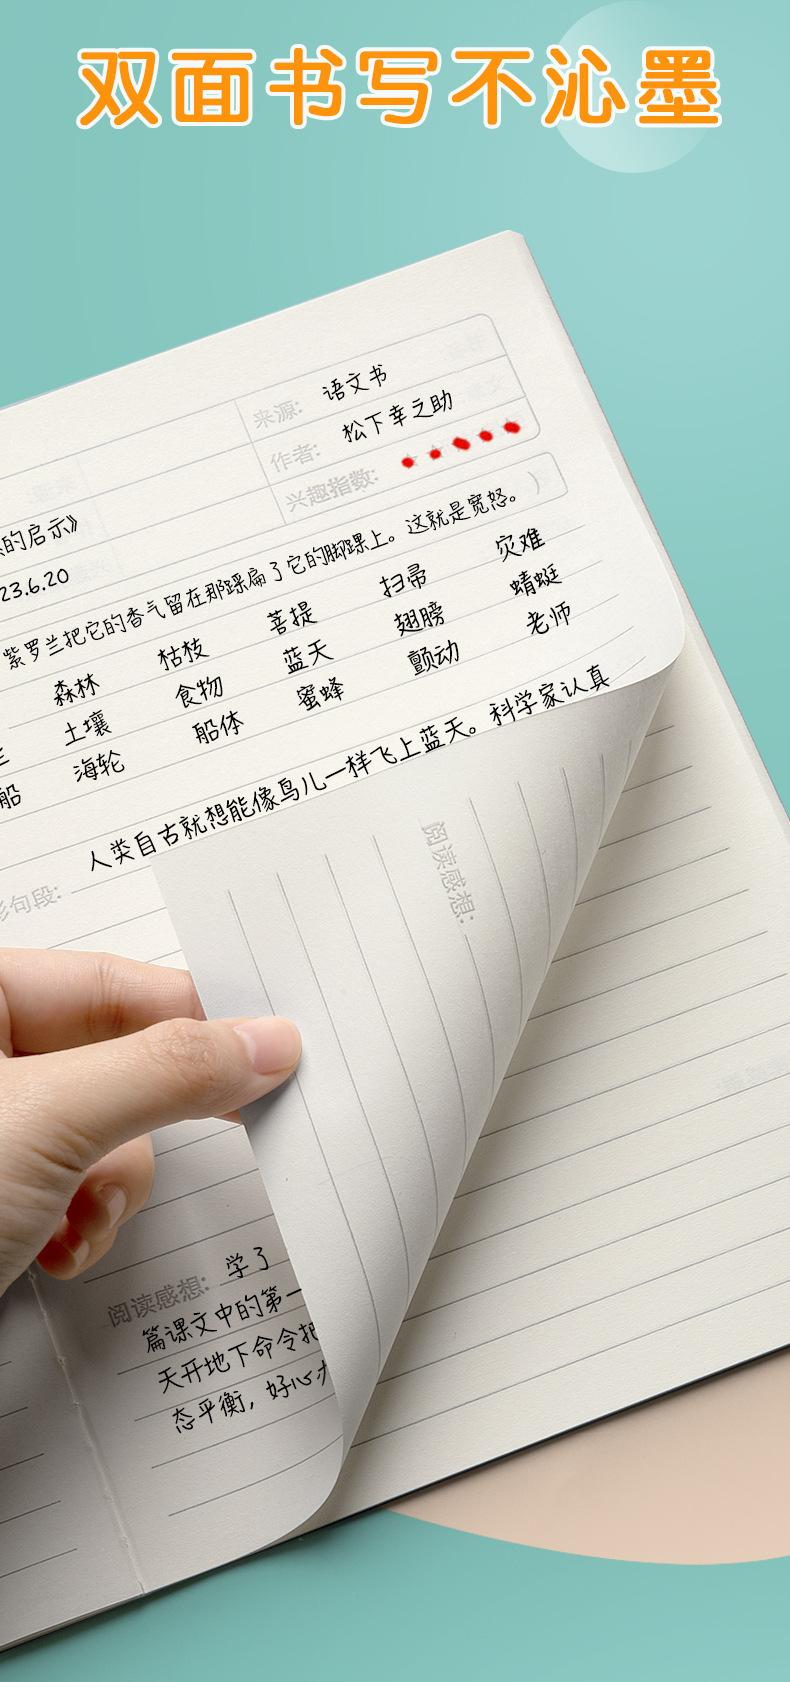 双面书写不沁墨
来源: 语文书
作者: 松下幸之助
兴趣指数:
的启示》
23.6.20
紫罗兰把它的香气留在那踩扁了它的脚踝上。这就是宽恕。 )
森林 枯枝 菩提 扫帚 灾难
土壤 食物 蓝天 翅膀 蜻蜓
船 海轮 船体 蜜蜂 颤动 老师
人类自古就想能像鸟儿一样飞上蓝天。科学家认真
句段:
阅读感想:
阅读感想: 学了
篇课文中的第一
天开地下命令把
态平衡，好心